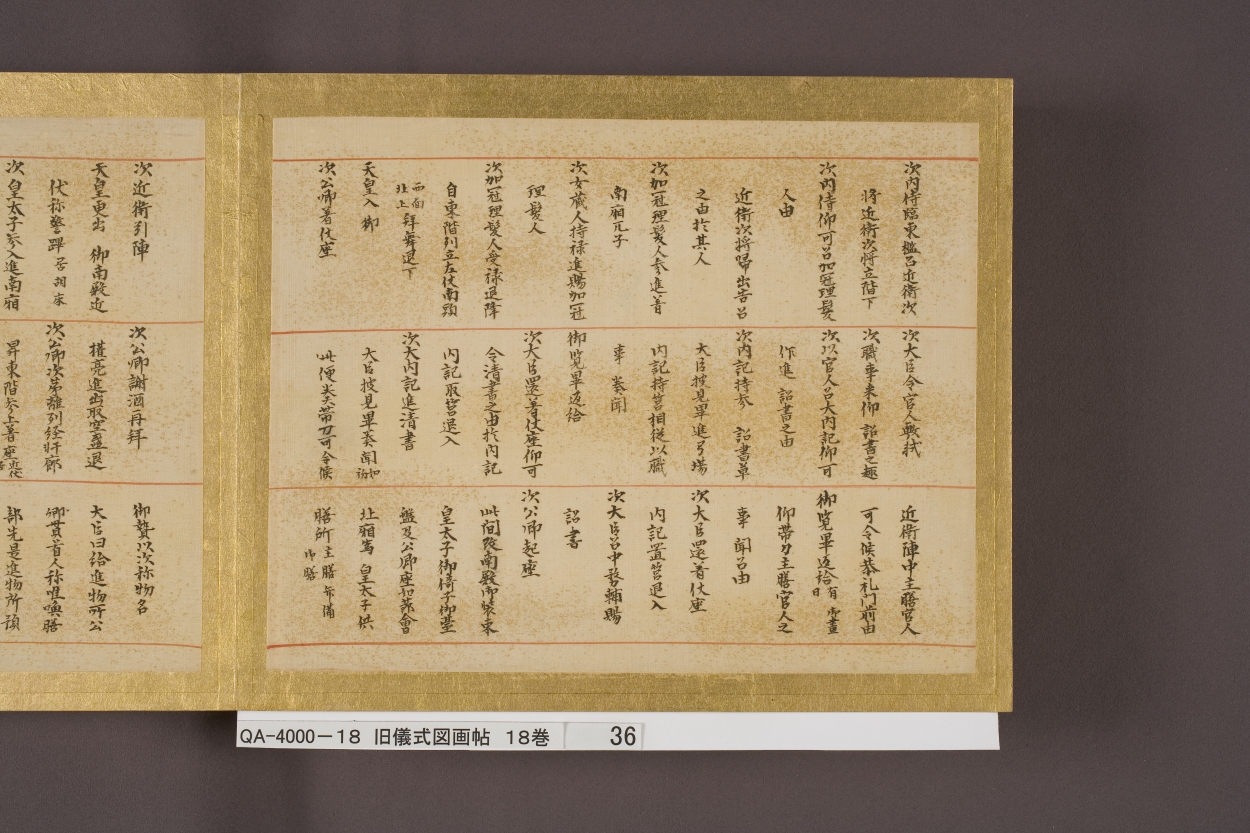 次内侍臨東檻召近衛次
将近衛次将立階下
次内侍仰可召加冠理髪
人由
近衛次将帰出告召
之由於其人
次加冠理髪人参進着
南廂兀子
次女蔵人持禄進賜加冠
理髪人
次加冠理髪人受禄退降
自東階列立左仗南頭
西面
北上
拝舞退下
天皇入御
次公卿著仗座
次大臣令官人敷軾
次職事来仰 詔書之趣
次以官人召大内記仰可
作進 詔書之由
次内記持参 詔書草
大臣披見畢進弓場
内記持筥相従以職
事 奏聞
御覧畢返給
次大臣還著仗座仰可
令清書之由於内記
内記取筥退入
次大内記進清書
大臣披見畢奏聞
此便奏帯刀可令候
近衛陣中主膳官人
可令候恭礼門前由
御覧畢返給
有御畫
日
仰帯刀主膳官人之
事 聞召由
次大臣還着仗座
内記置筥退入
次大臣召中務輔賜
詔書
次公卿起座
此间改南殿御装束
皇太子御倚子御臺
盤及公卿座如節會
北廂為 皇太子供
膳所
主膳弁備
御膳
次近衛引陣
天皇更出 御南殿近
仗称警蹕
居胡床
次皇太子参入進南廂
次公卿謝酒再拝
權亮進出取空盞退
次公卿次第離列経軒廊
昇東階参上著座
御贄以次称物名
大臣曰給進物所公
卿貫首人称唯喚膳
部先是進物所預
QA-4000-18 旧儀式図画帖 18巻 36